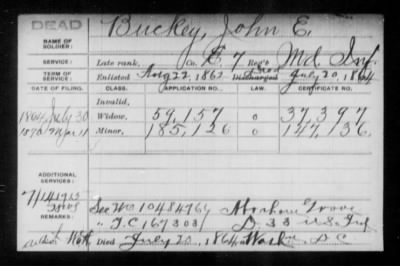 DEAD
Buckey, John E.
NAME OF SOLDIER:
SERVICE: Late rank, Co. B, 7 Reg't Md Inf
TERM OF SERVICE: Enlisted Aug 22, 1862 Discharged Died July 20, 1864
DATE OF FILING. CLASS. APPLICATION NO. LAW. CERTIFICATE NO.
Invalid,
1864 July 30 Widow, 59,157 o 37,397
1870 Mar 11 Minor, 185,126 o 147,136.
ADDITIONAL SERVICES:
7/14
REMARKS: See WO 1048476 Abraham Grove
" I.C. 167303 D. 33 U.S. Inf
Died July 20, 1864, Wash D.C